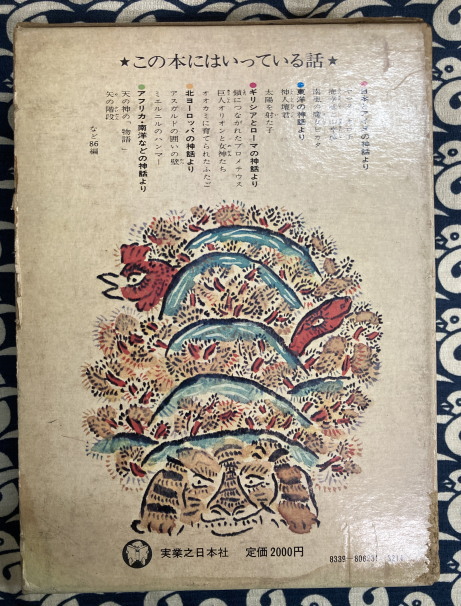 ★この本にはいっている話★
神話より
●東洋の神話より
神人壇君
太陽を射た子
●ギリシアとローマの神話より
鎖につながれたプロメテウス
巨人オリオンと女神たち
オオカミに育てられたふたご
●北ヨーロッパの神話より
アスガルドの囲いの壁
ミエルニルのハンマー
●アフリカ・南洋などの神話より
天の神の「物語」
矢の階段
など86編
実業之日本社 定価 2000円
8339-